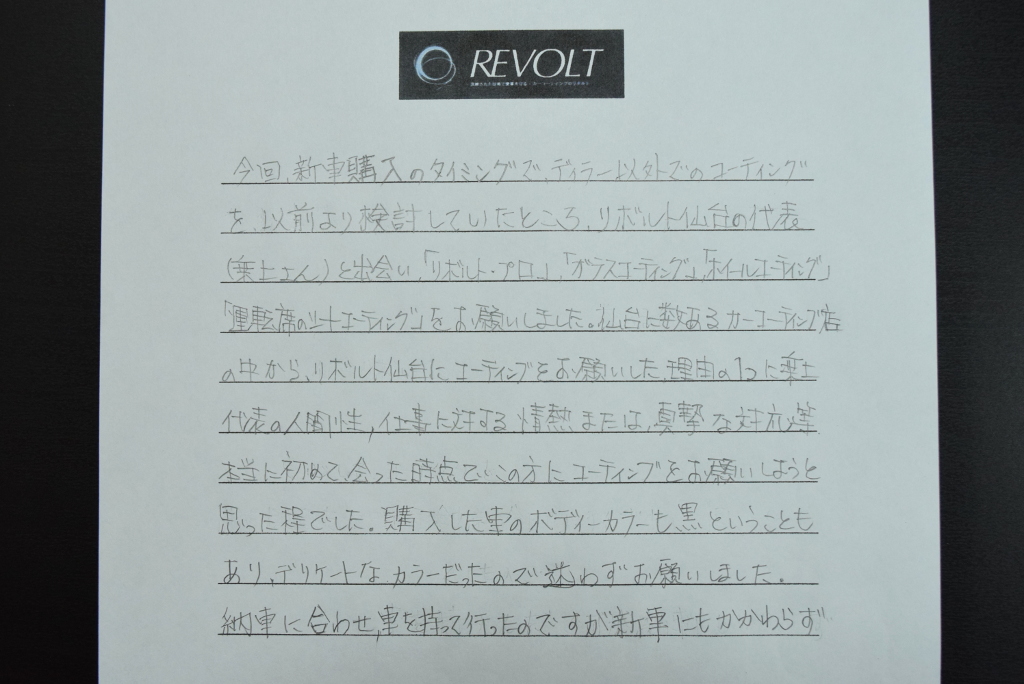 REVOLT
今回、新車購入のタイミングで、ディラー以外でのコーティング
を、以前より検討していたところ、リボルト仙台の代表
と出会い、「リボルト・プロ」、「ガラスコーティング」、「ホイールコーティング」
「運転席のシートコーティング」をお願いしました。仙台に数あるカーコーティング店
の中から、リボルト仙台にコーティングをお願いした、理由の1つに
代表の人間性,仕事に対する、情熱または,真撃な対応等
本当に初めて、会った時点で、この方にコーティングをお願いしようと
思った程でした。購入した車のボディーカラーも、黒ということも
あり,デリケートなカラーだったので迷わずお願いしました。
納車に合わせ,車を持って行ったのですが新車にもかかわらず